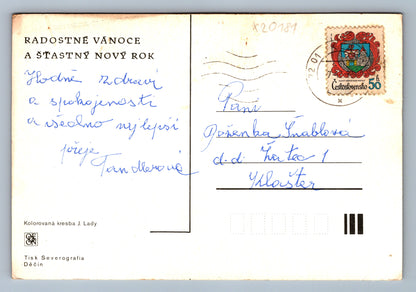 RADOSTNÉ VÁNOCE
A ŠŤASTNÝ NOVÝ ROK
Hodně zdraví
a spokojenosti
a všechno nejlepší
přeje
Tandlerová
Kolorovaná kresba J. Lady
Tisk Severografia
Děčín
X20181
22.01
Československo 50
Paní
Boženka Šnáblová
d.d. Žatec 1
Klášter